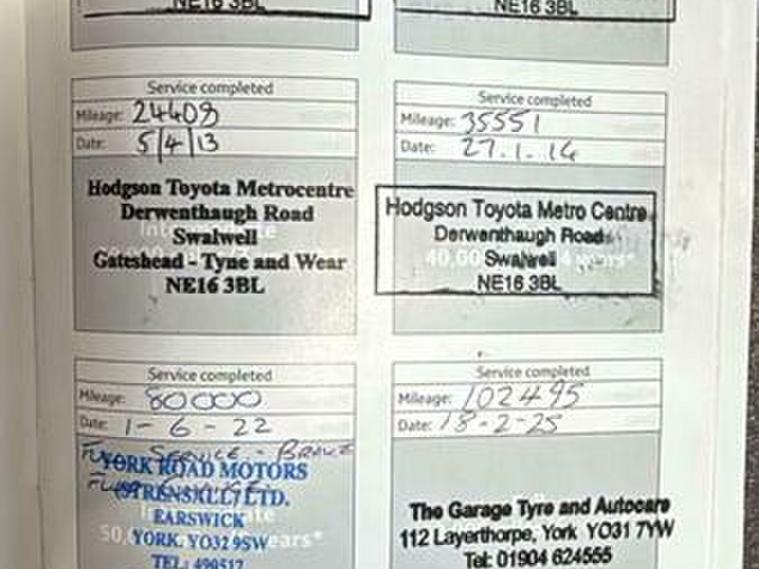 NE16 3BL
NE16 3BL
Service completed
Mileage: 24408
Date: 5/4/13
Hodgson Toyota Metrocentre
Derwenthaugh Road
Swalwell
Gateshead - Tyne and Wear
NE16 3BL
Service completed
Mileage: 35551
Date: 27.1.14
Hodgson Toyota Metro Centre
Derwenthaugh Road
Swalwell
40,00 years*
NE16 3BL
Service completed
Mileage: 80000
Date: 1-6-22
SERVICE - BRAKE
YORK ROAD MOTORS
(STRENSALL) LTD.
EARSWICK
50, ears*
YORK. YO32 9SW
TEL: 490517
Service completed
Mileage: 102495
Date: 18-2-25
The Garage Tyre and Autocare
112 Layerthorpe, York YO31 7YW
Tel: 01904 624555